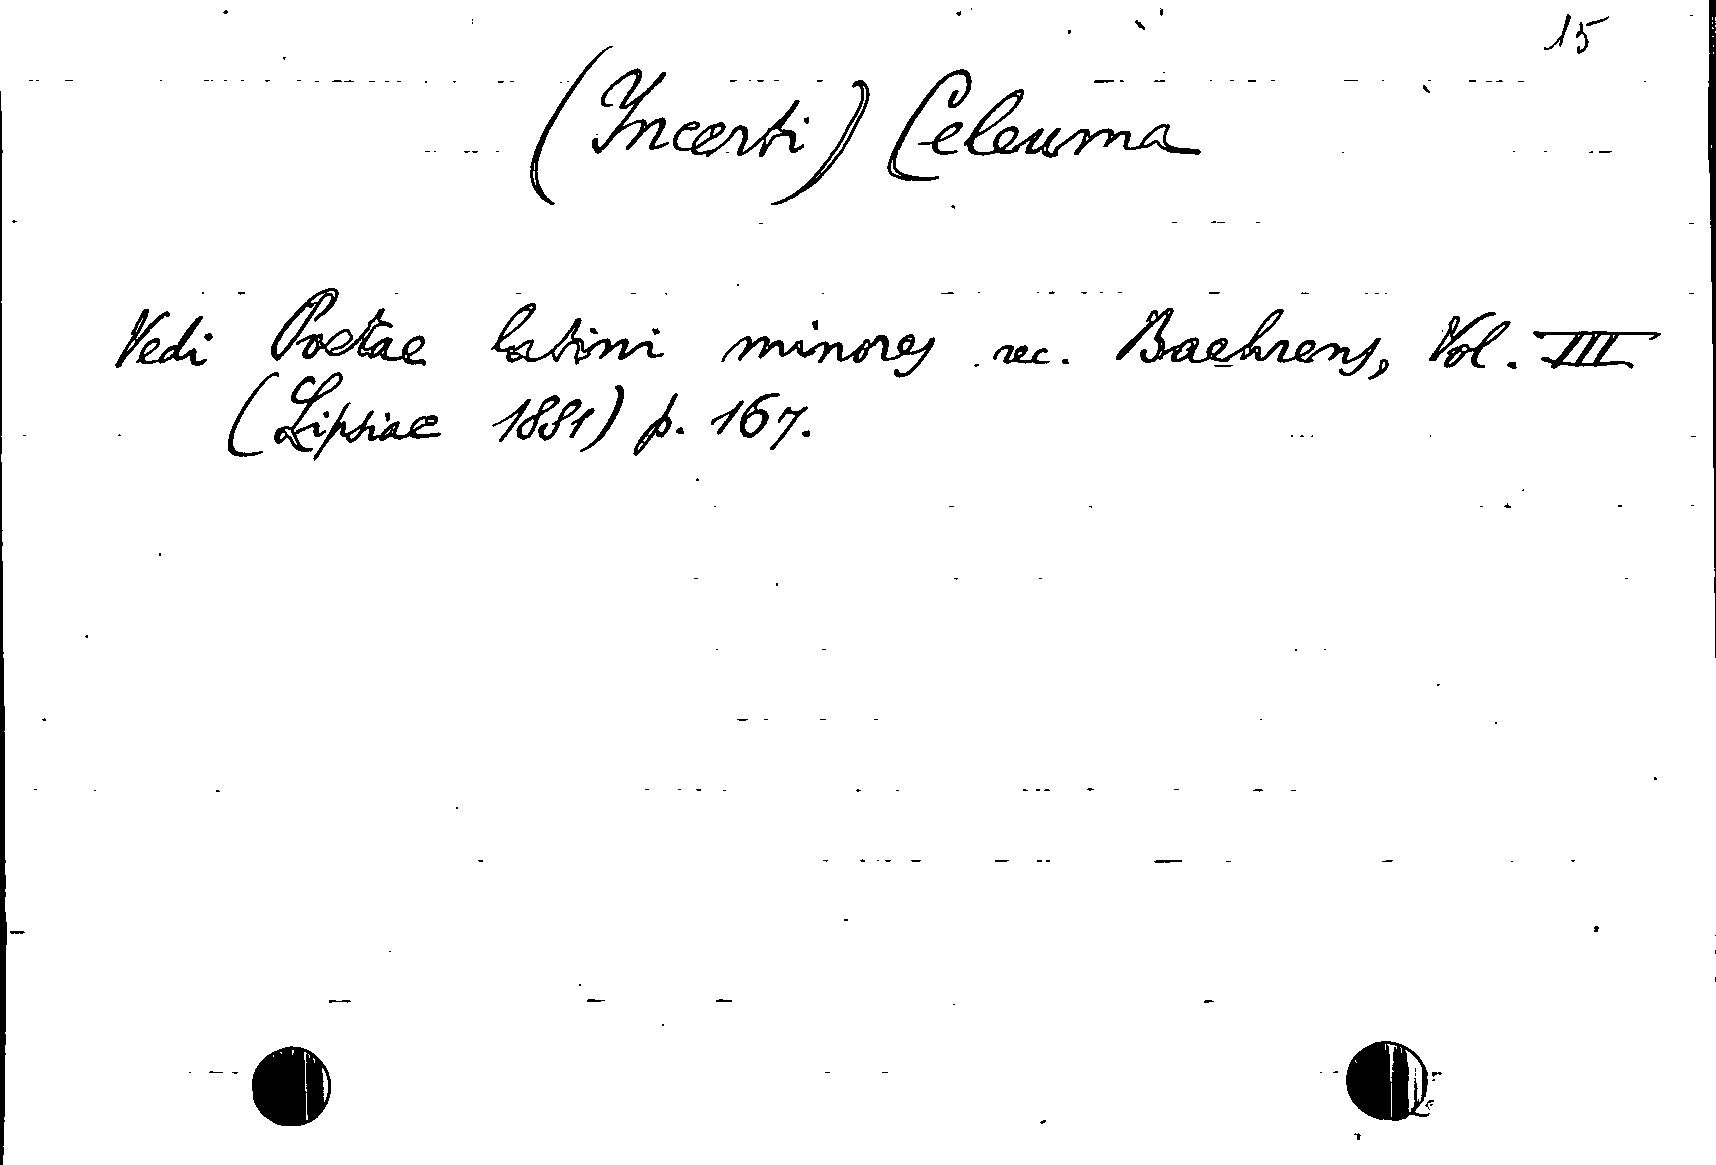 15
(Incerti) Celeuma
Vedi Poetae latini minores rec. Baehrens, Vol. III
(Lipsiae 1881) p. 167.